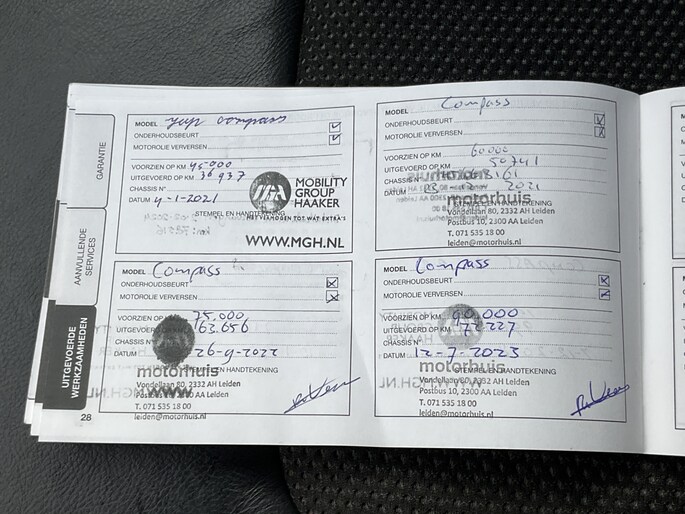 GARANTIE
AANVULLENDE
SERVICES
UITGEVOERDE
WERKZAAMHEDEN
28
MODEL Jeep compass
ONDERHOUDSBEURT
MOTOROLIE VERVERSEN
VOORZIEN OP KM 45-000
UITGEVOERD OP KM 36937
CHASSIS N°
DATUM 4-1-2021
STEMPEL EN HANDTEKENING
MOBILITY
GROUP
HAAKER
HET VERMOGEN TOT WAT EXTRA'S
WWW.MGH.NL
MODEL Compass
ONDERHOUDSBEURT
MOTOROLIE VERVERSEN
VOORZIEN OP KM 60000
UITGEVOERD OP KM 50741
CHASSIS N°
DATUM 2021
motorhuis
STEMPEL EN HANDTEKENING
Vondellaan 80, 2332 AH Leiden
Postbus 10, 2300 AA Leiden
T. 071 535 18 00
leiden@motorhuis.nl
MODEL Compass
ONDERHOUDSBEURT
MOTOROLIE VERVERSEN
VOORZIEN OP KM 75,000
UITGEVOERD OP KM 63.656
CHASSIS N°
DATUM 26-9-2022
motorhuis
STEMPEL EN HANDTEKENING
Vondellaan 80, 2332 AH Leiden
Postbus 10, 2300 AA Leiden
T. 071 535 18 00
leiden@motorhuis.nl
MODEL Compass
ONDERHOUDSBEURT
MOTOROLIE VERVERSEN
VOORZIEN OP KM 90,000
UITGEVOERD OP KM 72227
CHASSIS N°
DATUM 12-7-2023
motorhuis
STEMPEL EN HANDTEKENING
Vondellaan 80, 2332 AH Leiden
Postbus 10, 2300 AA Leiden
T. 071 535 18 00
leiden@motorhuis.nl